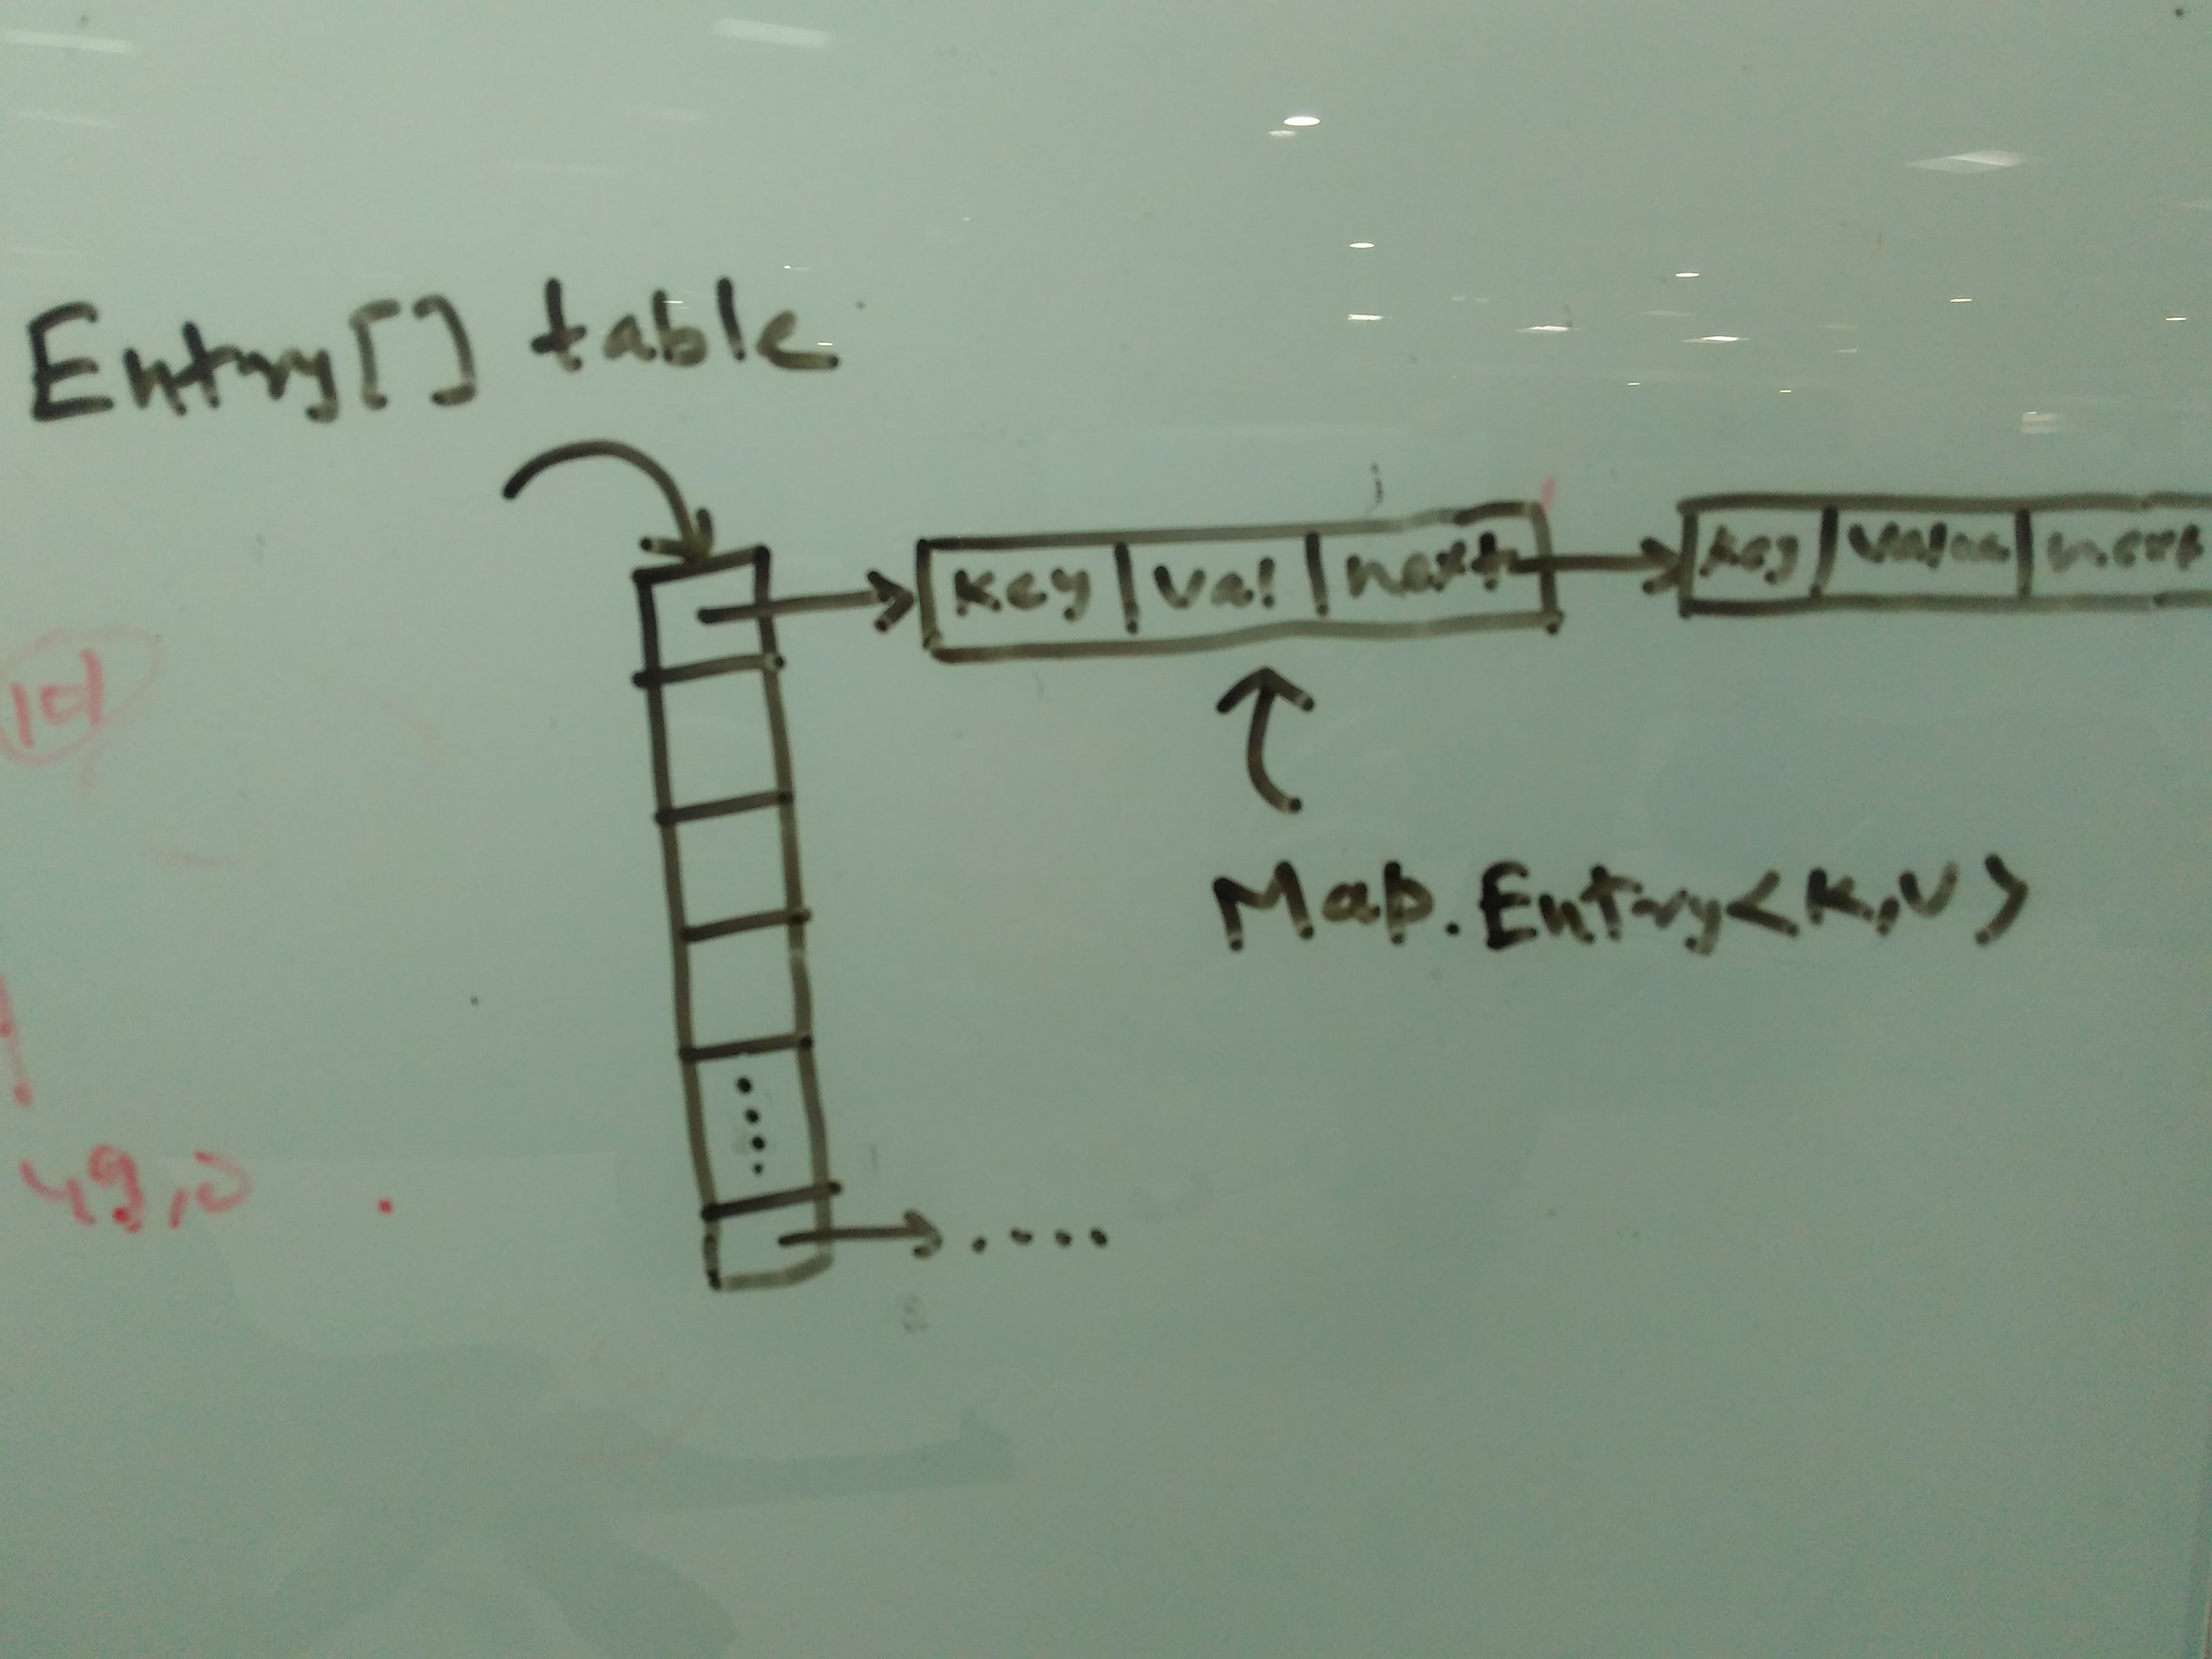 Entry[] table
key | val | next
key | value | next
Map.Entry<K,V>
49,